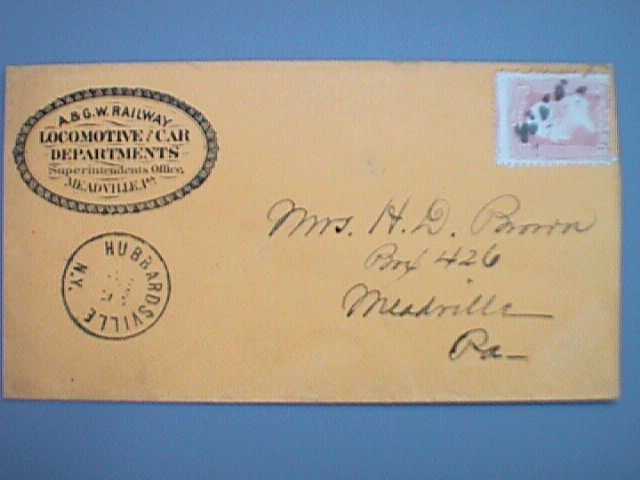 A. & G. W. RAILWAY
LOCOMOTIVE & CAR
DEPARTMENTS
Superintendents Office,
MEADVILLE, Pa
HUBBARDSVILLE
N.Y.
Mrs. H. D. Brown
Box 426
Meadville
Pa